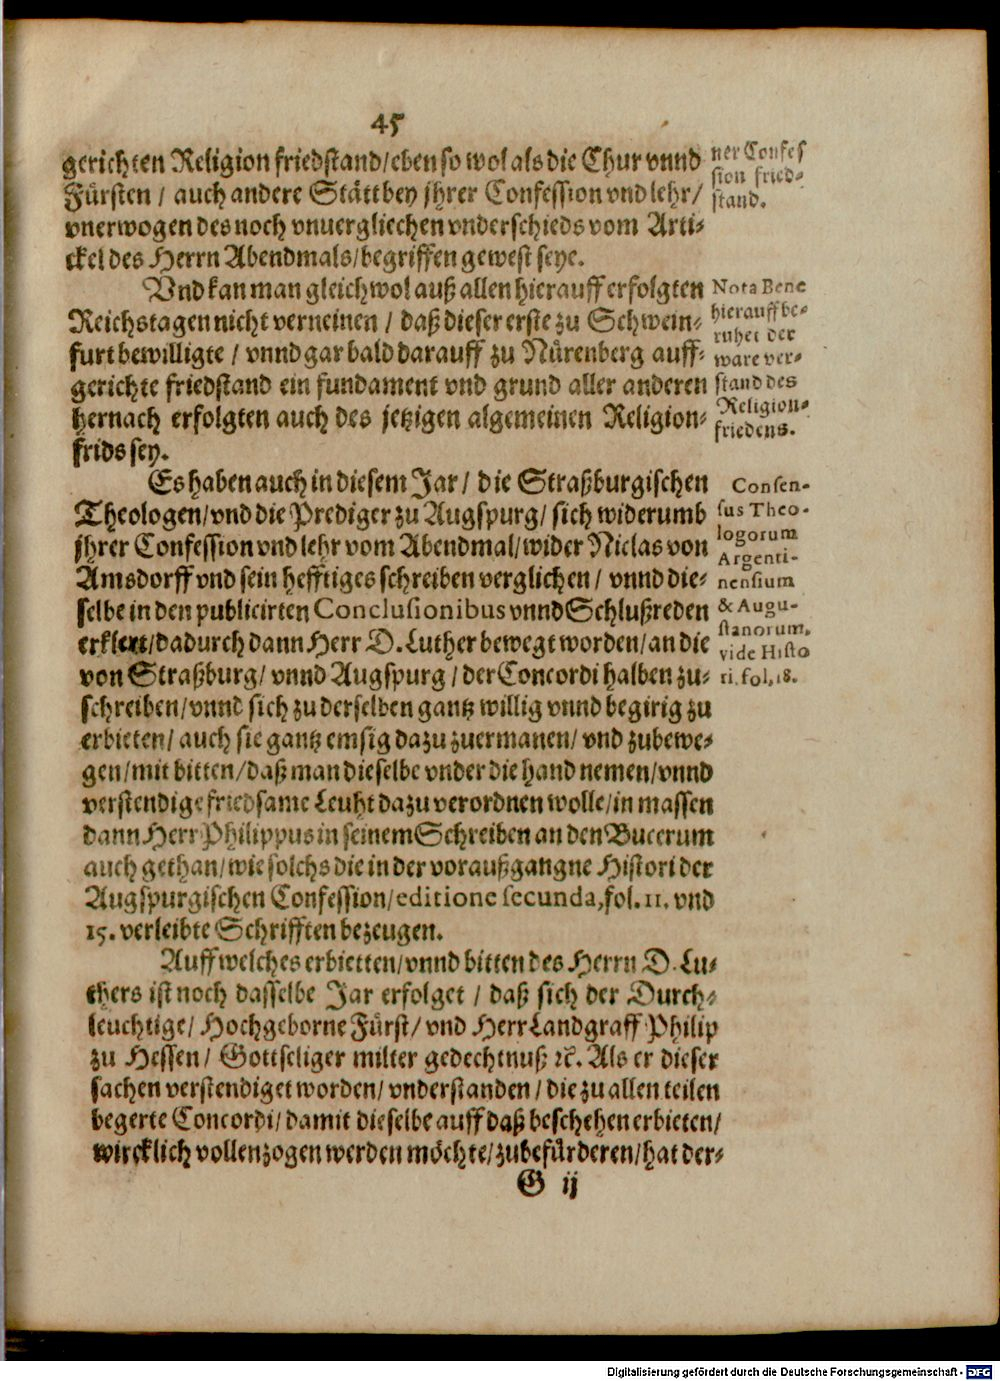 45
gerichten Religion friedstand/eben so wol als die Chur vnnd
Fürsten / auch andere Stätt bey jhrer Confession vnd lehr/
vnerwogen des noch vnuergliechen vnderschieds vom Arti-
ckel des Herrn Abendmals/begriffen gewest seye.
ner Confes
sion fried-
stand.
Vnd kan man gleichwol auß allen hierauff erfolgten
Reichstagen nicht verneinen / daß dieser erste zu Schwein-
furt bewilligte / vnnd gar bald darauff zu Nürenberg auff-
gerichte friedstand ein fundament vnd grund aller anderen
hernach erfolgten auch des jetzigen algemeinen Religion-
frids sey.
Nota Bene
hierauff be-
ruhet der
ware ver-
stand des
Religion-
friedens.
Es haben auch in diesem Jar/ die Straßburgischen
Theologen/vnd die Prediger zu Augspurg/ sich widerumb
jhrer Confession vnd lehr vom Abendmal/wider Niclas von
Amsdorff vnd sein hefftiges schreiben verglichen / vnnd die-
selbe in den publicirten Conclusionibus vnnd Schlußreden
erklert/dadurch dann Herr D. Luther bewegt worden/an die
von Straßburg/ vnnd Augspurg / der Concordi halben zu-
schreiben/vnnd sich zu derselben gantz willig vnnd begirig zu
erbieten/ auch sie gantz emsig dazu zuermanen/ vnd zubewe-
gen/mit bitten/daß man dieselbe vnder die hand nemen/vnnd
verstendige friedsame Leuht dazu verordnen wolle/in massen
dann Herr Philippus in seinem Schreiben an den Bucerum
auch gethan/wie solchs die in der voraußgangne Histori der
Augspurgischen Confession/editione secunda,fol.11. vnd
15. verleibte Schrifften bezeugen.
Consen-
sus Theo-
logorum
Argenti-
nensium
& Augu-
stanorum,
vide Histo
ri.fol.18.
Auff welches erbietten/vnnd bitten des Herrn D. Lu-
thers ist noch dasselbe Jar erfolget / daß sich der Durch-
leuchtige/ Hochgeborne Fürst/ vnd Herr Landgraff Philip
zu Hessen/ Gottseliger milter gedechtnuß ꝛc. Als er dieser
sachen verstendiget worden/ vnderstanden / die zu allen teilen
begerte Concordi/ damit dieselbe auff daß beschehen erbieten/
wircklich vollenzogen werden möchte/zubefürderen/hat der-
G ij
Digitalisierung gefördert durch die Deutsche Forschungsgemeinschaft - DFG